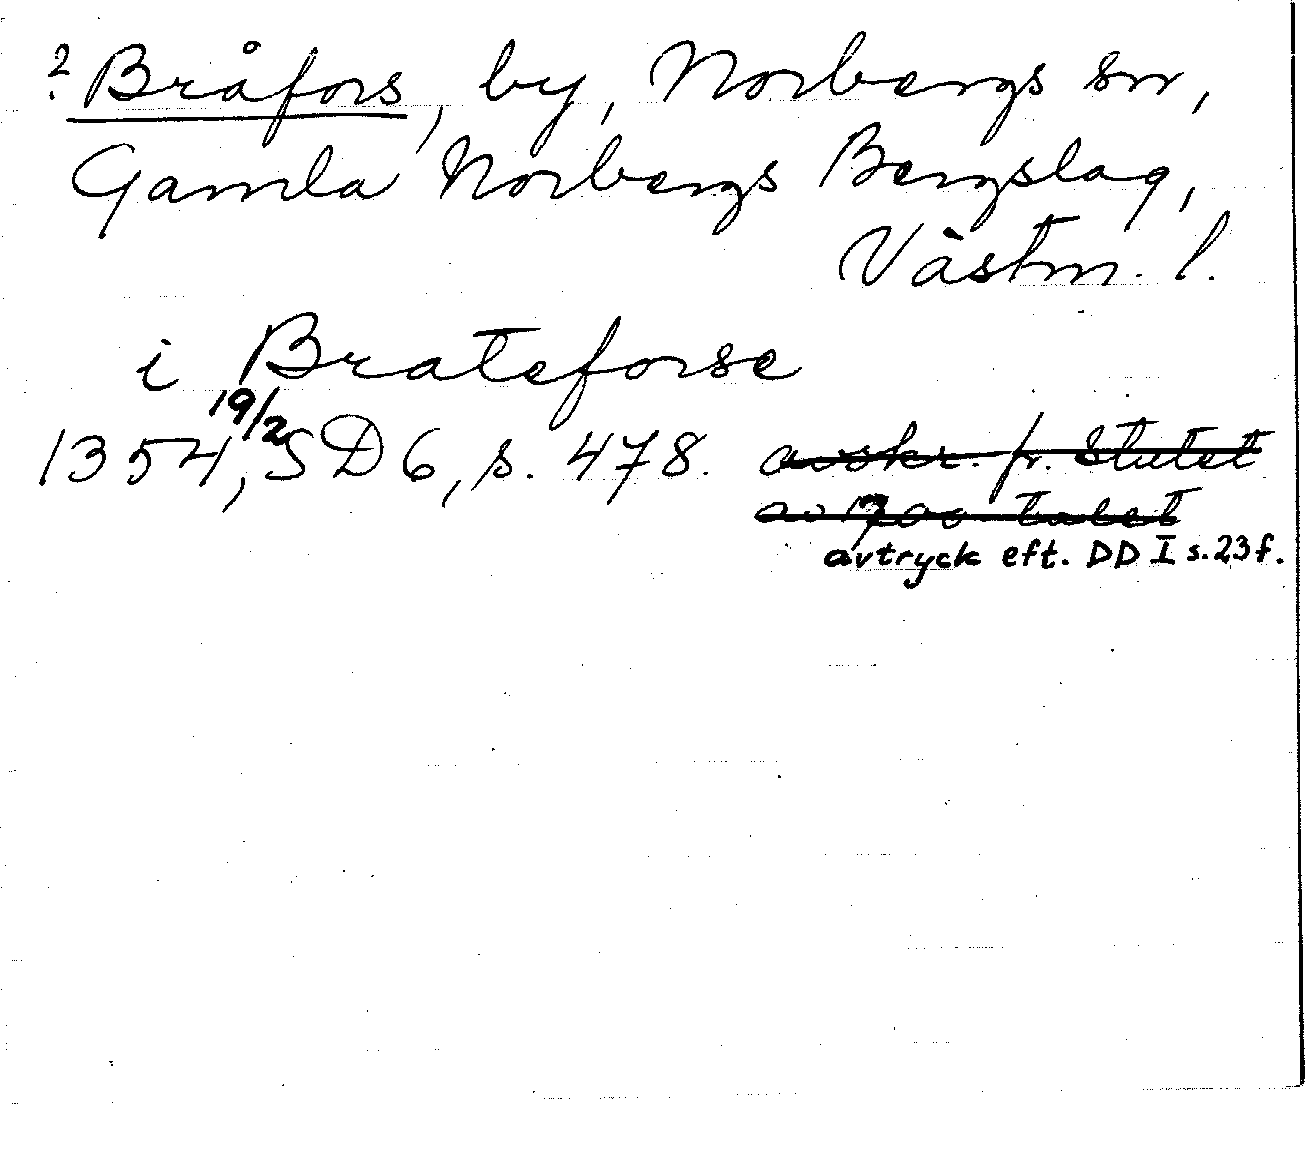 ? Bråfors, by, Norbergs sn,
Gamla Norbergs Bergslag,
Västm. l.
i Brateforse
1354 19/2, SD 6, s. 478. avskr. fr. slutet
av 1700-talet
avtryck eft. DD I s. 23 f.